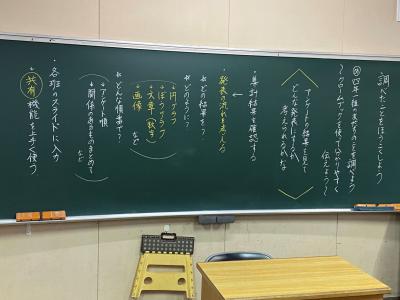 調べたことをほうこくしよう
四年一組の友だちのことを調べよう
〜クロームブックを使って分かりやすく
伝えよう〜
アンケートの結果を見て
どんな発表にするか
考えられるかな
・集計結果を確認する
↓
・発表の流れを考える
☆どの結果を?
☆どのように?
・円グラフ
・ぼうグラフ
・文章(数字)
・画像 など
☆どんな順番で?
・アンケート順
・関係のあるものをまとめて
など
・各班のスライドに入力
・共有機能を上手く使う